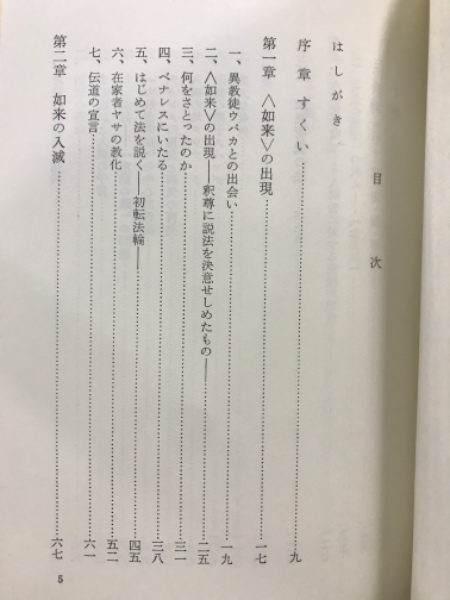 目次
はしがき
序章 すくい……九
第一章 〈如来〉の出現……一七
一、異教徒ウパカとの出会い……一九
二、〈如来〉の出現――釈尊に説法を決意せしめたもの――……二五
三、何をさとったのか……三一
四、ベナレスにいたる……三八
五、はじめて法を説く――初転法輪――……四五
六、在家者ヤサの教化……五二
七、伝道の宣言……六一
第二章 如来の入滅……六七
5